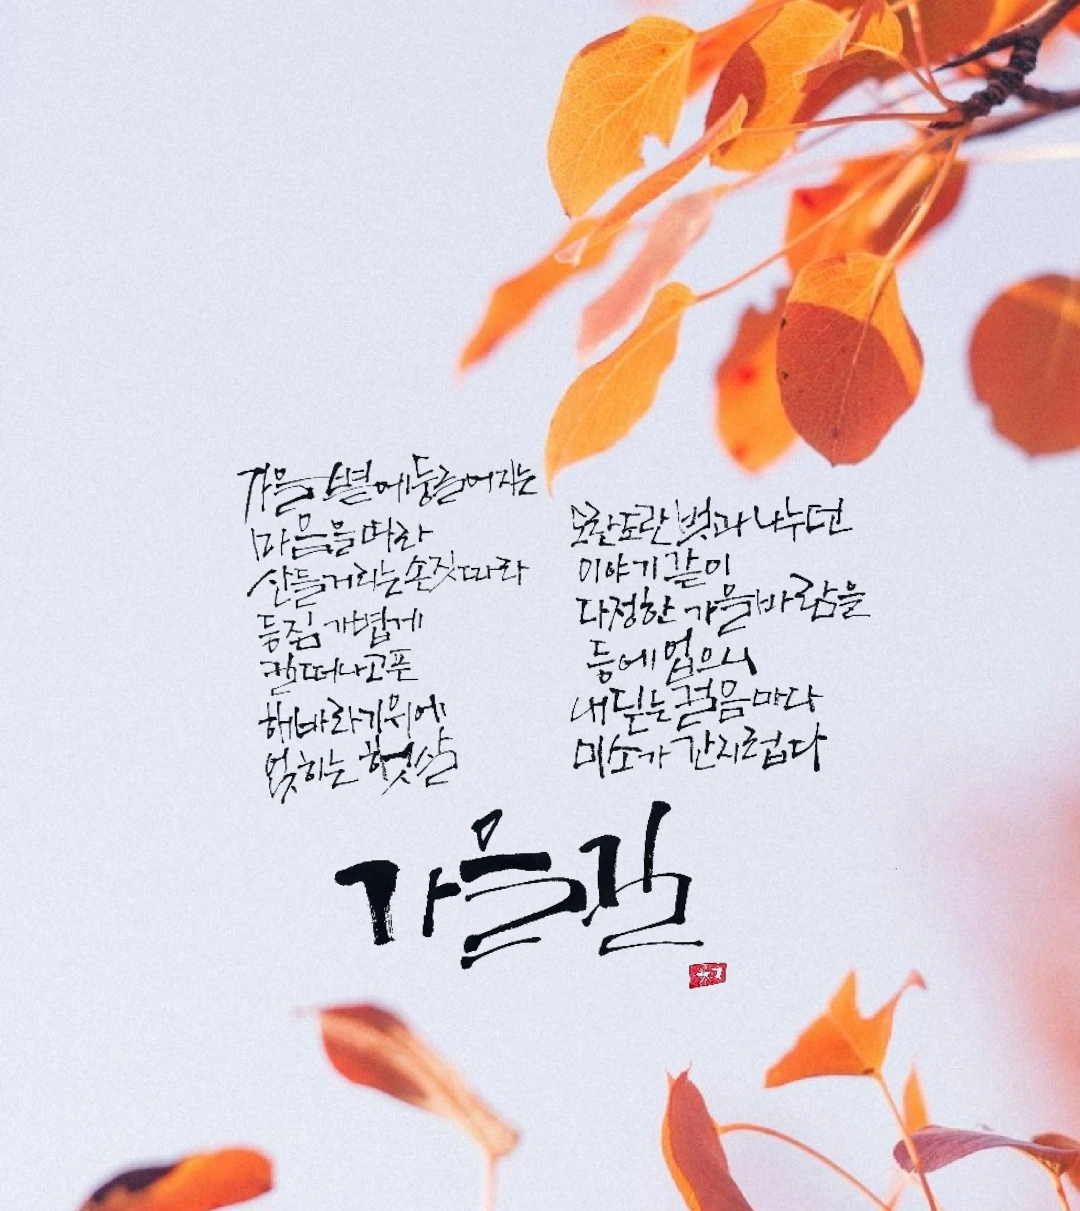 가을 볕에 둥글어지는
마음을 따라
산들거리는 손짓 따라
등짐 가볍게
길 떠나고픈
해바라기 위에
맺히는 햇살
도란도란 벗과 나누던
이야기 같이
다정한 가을바람을
등에 업으니
내딛는 걸음마다
미소가 간지럽다
가을길